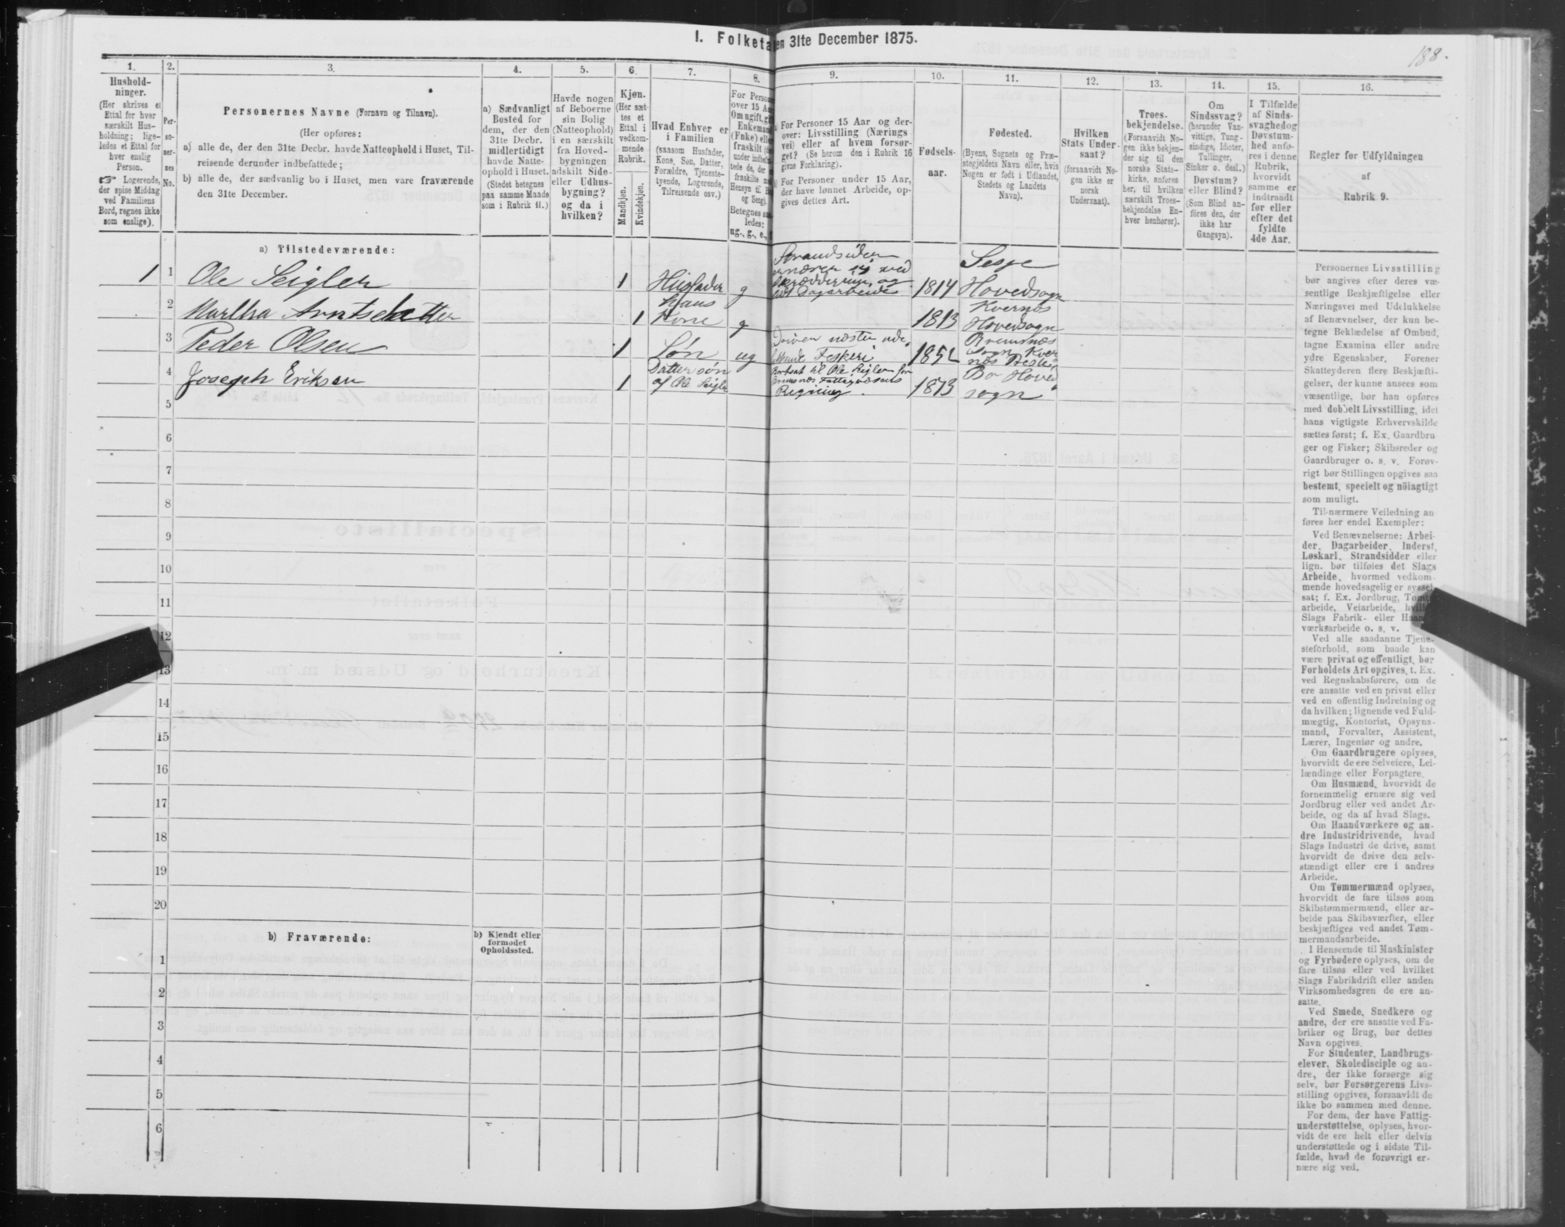 188.
I. Folketal den 31te December 1875.
1. 2. 3. 4. 5. 6. 7. 8. 9. 10. 11. 12. 13. 14. 15. 16.
Hushold-
ninger.
(Her skrives et
Ettal for hver
særskilt Hus-
holdning; lige-
ledes et Ettal for
hver enslig
Person.
☞ Logerende,
der spise Middag
ved Familiens
Bord, regnes ikke
som enslige).
Per-
so-
ner-
nes
No.
Personernes Navne (Fornavn og Tilnavn).
(Her opføres:
a) alle de, der den 31te Decbr. havde Natteophold i Huset, Til-
reisende derunder indbefattede;
b) alle de, der sædvanlig bo i Huset, men vare fraværende
den 31te December.
a) Sædvanligt
Bosted for
dem, der den
31te Decbr.
midlertidigt
havde Natte-
ophold i Huset.
(Stedet betegnes
paa samme Maade
som i Rubrik 11.)
Havde nogen
af Beboerne
sin Bolig
(Natteophold)
i en særskilt
fra Hoved-
bygningen
adskilt Side-
eller Udhus-
bygning?
og da i
hvilken?
Kjøn.
(Her sæt-
tes et
Ettal i
vedkom-
mende
Rubrik.
Mandkjøn.
Kvindekjøn.
Hvad Enhver er
i Familien
(saasom Husfader,
Kone, Søn, Datter,
Forældre, Tjeneste-
tyende, Logerende,
Tilreisende osv.)
For Personer
over 15 Aar
For Personer 15 Aar og der-
over: Livsstilling (Nærings
vei) eller af hvem forsør-
get? (Se herom den i Rubrik 16
givne Forklaring).
For Personer under 15 Aar,
der have lønnet Arbeide, op-
gives dettes Art.
Fødsels-
aar.
Fødested.
(Byens, Sognets og Præ-
stegjeldets Navn eller, hvis
Nogen er født i Udlandet,
Stedets og Landets
Navn).
Hvilken
Stats Under-
saat?
(forsaavidt No-
gen ikke er
norsk
Undersaat).
Troes-
bekjendelse.
(Forsaavidt No-
gen ikke bekjen-
der sig til den
norske Stats-
kirke, anføres
her, til hvilken
særskilt Troes-
bekjendelse En-
hver henhører).
Om
Sindssvag?
(herunder Van-
vittige, Tung-
sindige, Idioter,
Tullinger,
Sinker o. desl.)
Døvstum?
eller Blind?
(Som Blind an-
føres den, der
ikke har
Gangsyn).
I Tilfælde
af Sinds-
svaghed og
Døvstum-
hed anfø-
res i denne
Rubrik,
hvorvidt
samme er
indtraadt
før eller
efter det
fyldte
4de Aar.
Regler før Udfyldningen
af
Rubrik 9.
a) Tilstedeværende:
1 1 Ole Seigler 1 Husfader g Strandsidder 1814 Hovedsogn
2 Martha Arntsdatter 1 Hans Kone g 1813 Kvernæs Hovedsogn
3 Peder Olsen 1 Søn ug Fiskeri 1852
4 Joseph Eriksen 1 Dattersøn af Ole Seigler 1873 Bo Hovedsogn
5
6
7
8
9
10
11
12
13
14
15
16
17
18
19
20
b) Fraværende:
b) Kjendt eller
formodet
Opholdssted.
1
2
3
4
5
6
Personernes Livsstilling
bør angives efter deres væ-
sentlige Beskjæftigelse eller
Næringsvei med Udelukkelse
af Benævnelser, der kun be-
tegne Beklædelse af Ombud,
tagne Examina eller andre
ydre Egenskaber. Forener
Skatteyderen flere Beskjæfti-
gelser, der kunne ansees som
væsentlige, bør han opføres
med dobbelt Livsstilling, idet
hans vigtigste Erhvervskilde
sættes først; f. Ex. Gaardbru
ger og Fisker; Skibsreder og
Gaardbruger o. s. v. Forøv-
rigt bør Stillingen opgives saa
bestemt, specielt og nöiagtigt
som muligt.
Til nærmere Veiledning an
føres her endel Exempler:
Ved Benævnelserne: Arbei-
der, Dagarbeider, Inderst,
Løskarl, Strandsidder eller
lign. bør tilføies det Slags
Arbeide, hvormed vedkom-
mende hovedsagelig er syssel-
sat; f. Ex. Jordbrug, Tømmer-
arbeide, Veiarbeide, hvilket
Slags Fabrik- eller Haand-
værksarbeide o. s. v.
Ved alle saadanne Tjene-
steforhold, som baade kan
være privat og offentligt, bør
Forholdets Art opgives, t. Ex.
ved Regnskabsførere, om de
ere ansatte ved en privat eller
ved en offentlig Indretning og
da hvilken; lignende ved Fuld-
mægtig, Kontorist, Opsyns-
mand, Forvalter, Assistent,
Lærer, Ingeniør og andre.
Om Gaardbrugere oplyses,
hvorvidt de ere Selveiere, Lei-
lændinge eller Forpagtere.
Om Husmænd, hvorvidt de
fornemmelig ernære sig ved
Jordbrug eller ved andet Ar-
beide, og da af hvad Slags.
Om Haandværkere og an-
dre Industridrivende, hvad
Slags Industri de drive, samt
hvorvidt de drive den selv-
stændigt eller ere i andres
Arbeide.
Om Tømmermænd oplyses,
hvorvidt de fare tilsøs som
Skibstømmermænd, eller ar-
beide paa Skibsværfter, eller
beskjæftiges ved andet Tøm-
mermandsarbeide.
I Henseende til Maskinister
og Fyrbødere oplyses, om de
fare tilsøs eller ved hvilket
Slags Fabrikdrift eller anden
Virksomhedsgren de ere an-
satte.
Ved Smede, Snedkere og
andre, der ere ansatte ved Fa-
briker og Brug, bør dettes
Navn opgives.
For Studenter, Landbrugs-
elever, Skoledisciple og an-
dre, der ikke forsørge sig
selv, bør Forsørgerens Livs-
stilling opgives, forsaavidt de
ikke bo sammen med denne.
For dem, der have Fattig-
understøttelse, oplyses, hvor-
vidt de ere helt eller delvis
understøttede og i sidste Til-
fælde, hvad de forøvrigt er-
nære sig ved.